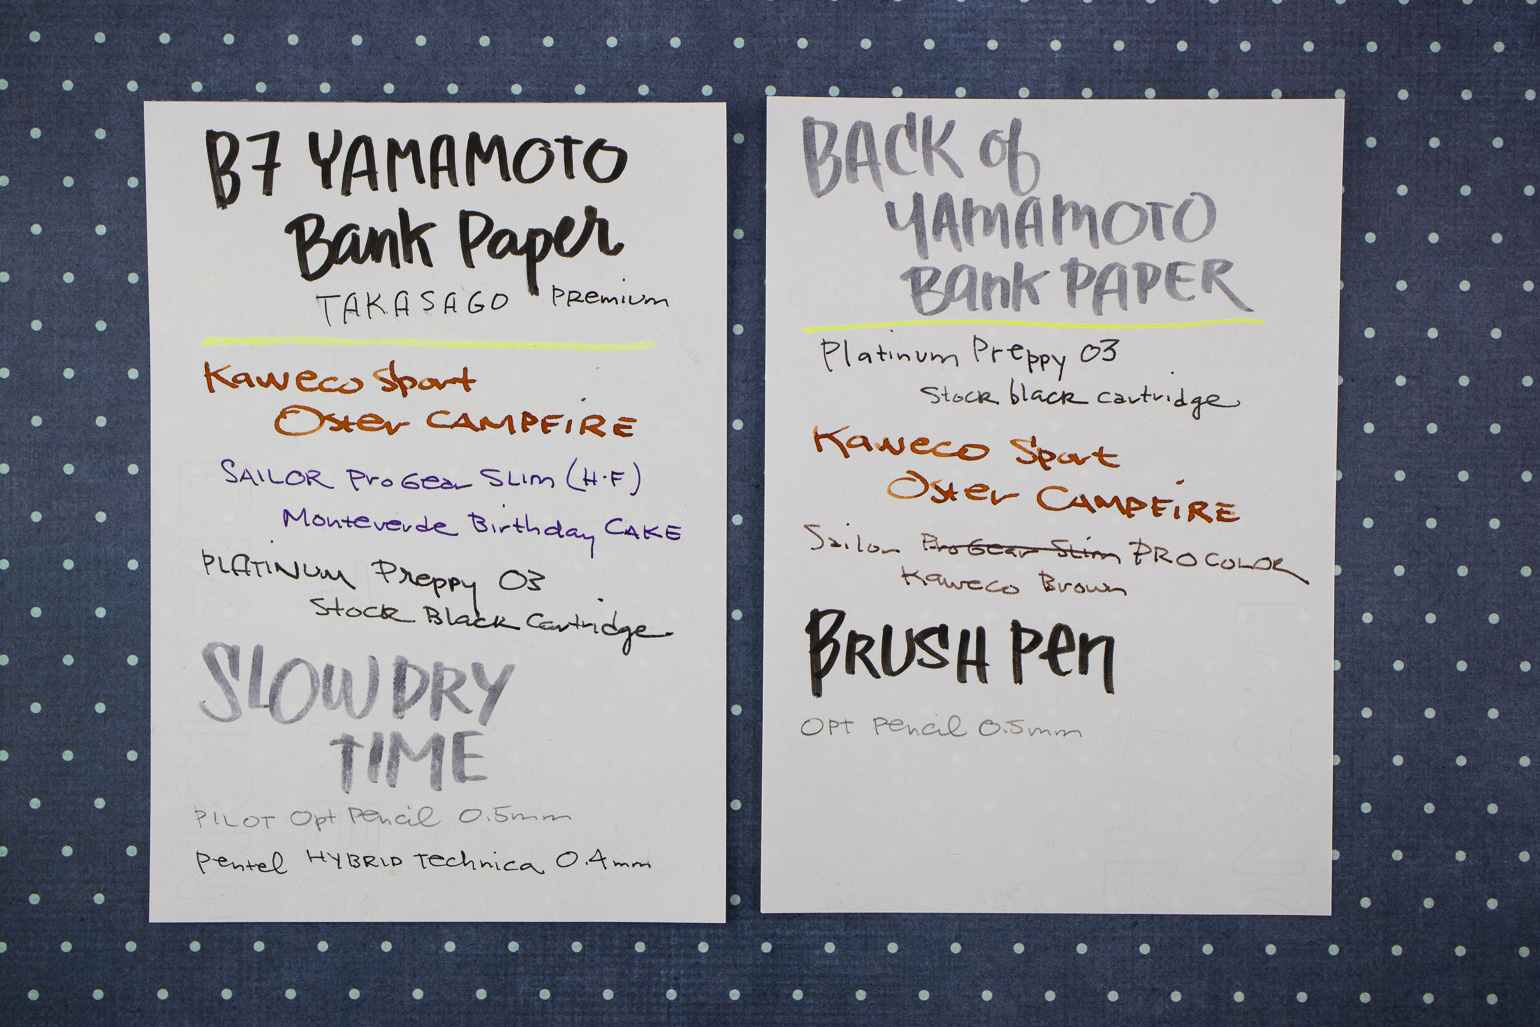 B7 YAMAMOTO
Bank Paper
TAKASAGO Premium
Kaweco Sport
Oster CAMPFIRE
SAILOR Pro Gear Slim (H-F)
Monteverde Birthday CAKE
PLATINUM Preppy 03
Stock Black Cartridge
SLOW DRY
TIME
PILOT Opt Pencil 0.5mm
Pentel HYBRID Technica 0.4mm
BACK of
YAMAMOTO
Bank PAPER
Platinum Preppy 03
Stock black cartridge
Kaweco Sport
Oster CAMPFIRE
Sailor Pro Gear Slim PRO COLOR
Kaweco Brown
BRUSH Pen
OPT Pencil 0.5mm